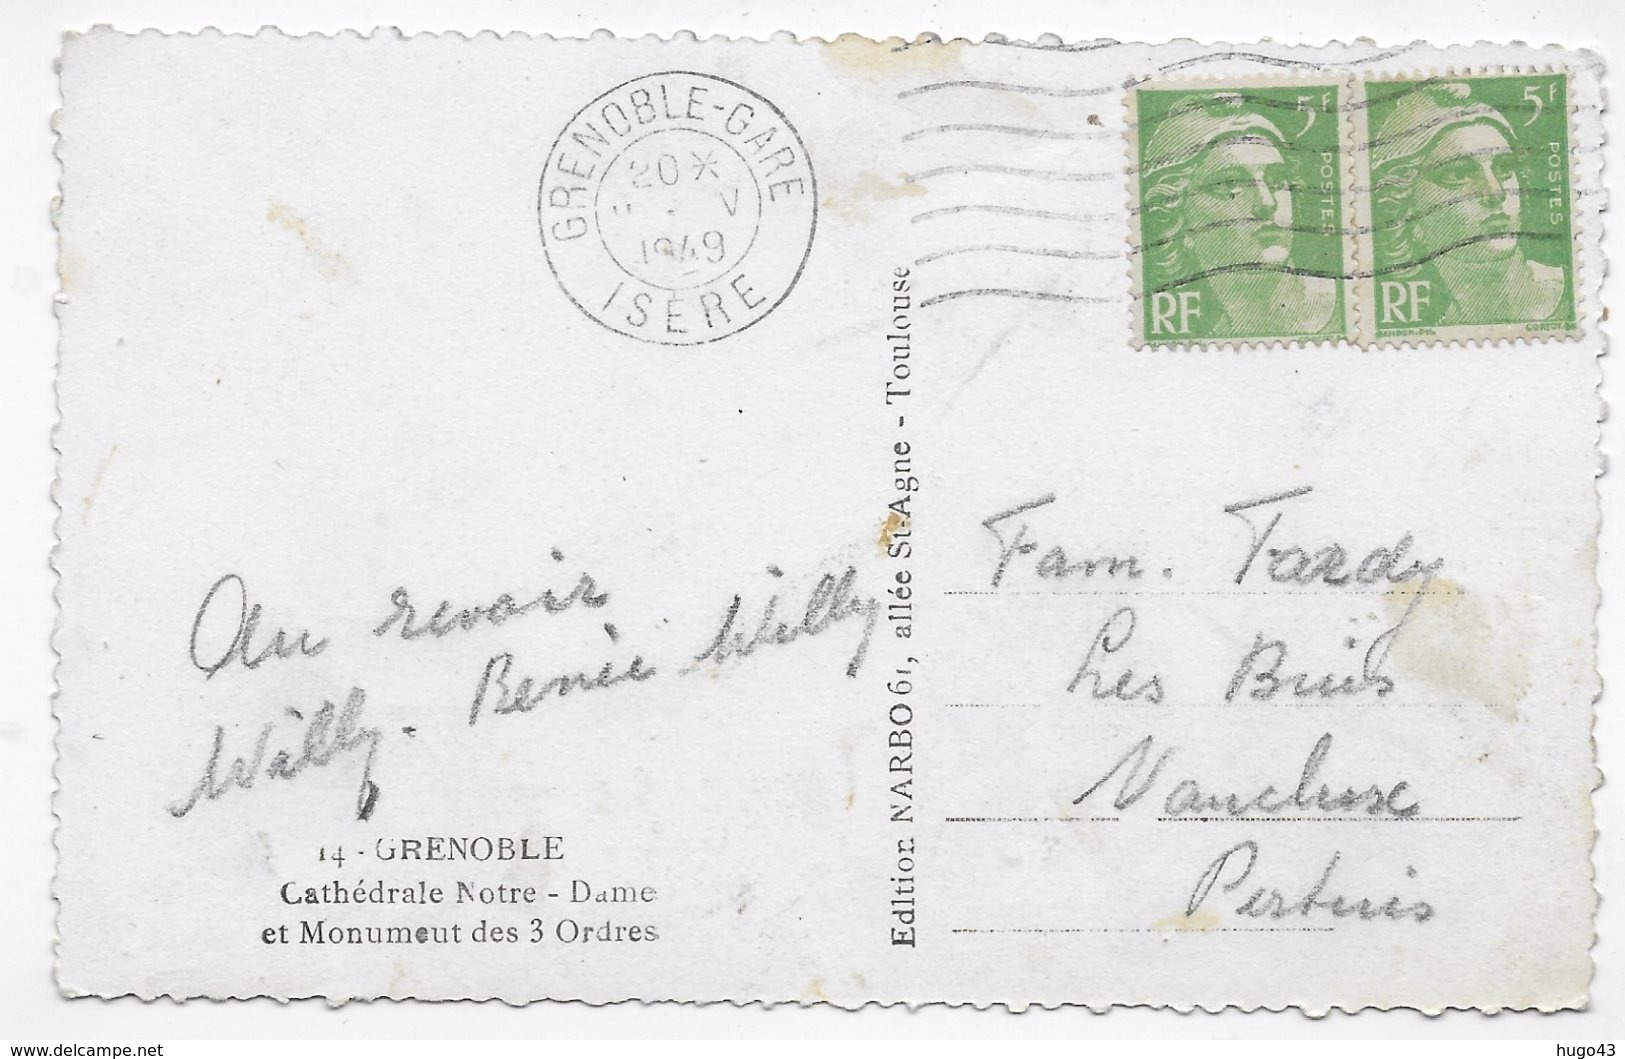 GRENOBLE-GARE
20*
V
1949
ISERE
5F
POSTES
RF
5F
POSTES
RF
Au revoir
Willy. Renée Willy
14 - GRENOBLE
Cathédrale Notre - Dame
et Monument des 3 Ordres
Edition NARBO 61, allée St-Agne - Toulouse
Fam. Tardy
Les Buis
Vaucluse
Pertuis
www.delcampe.net
hugo43